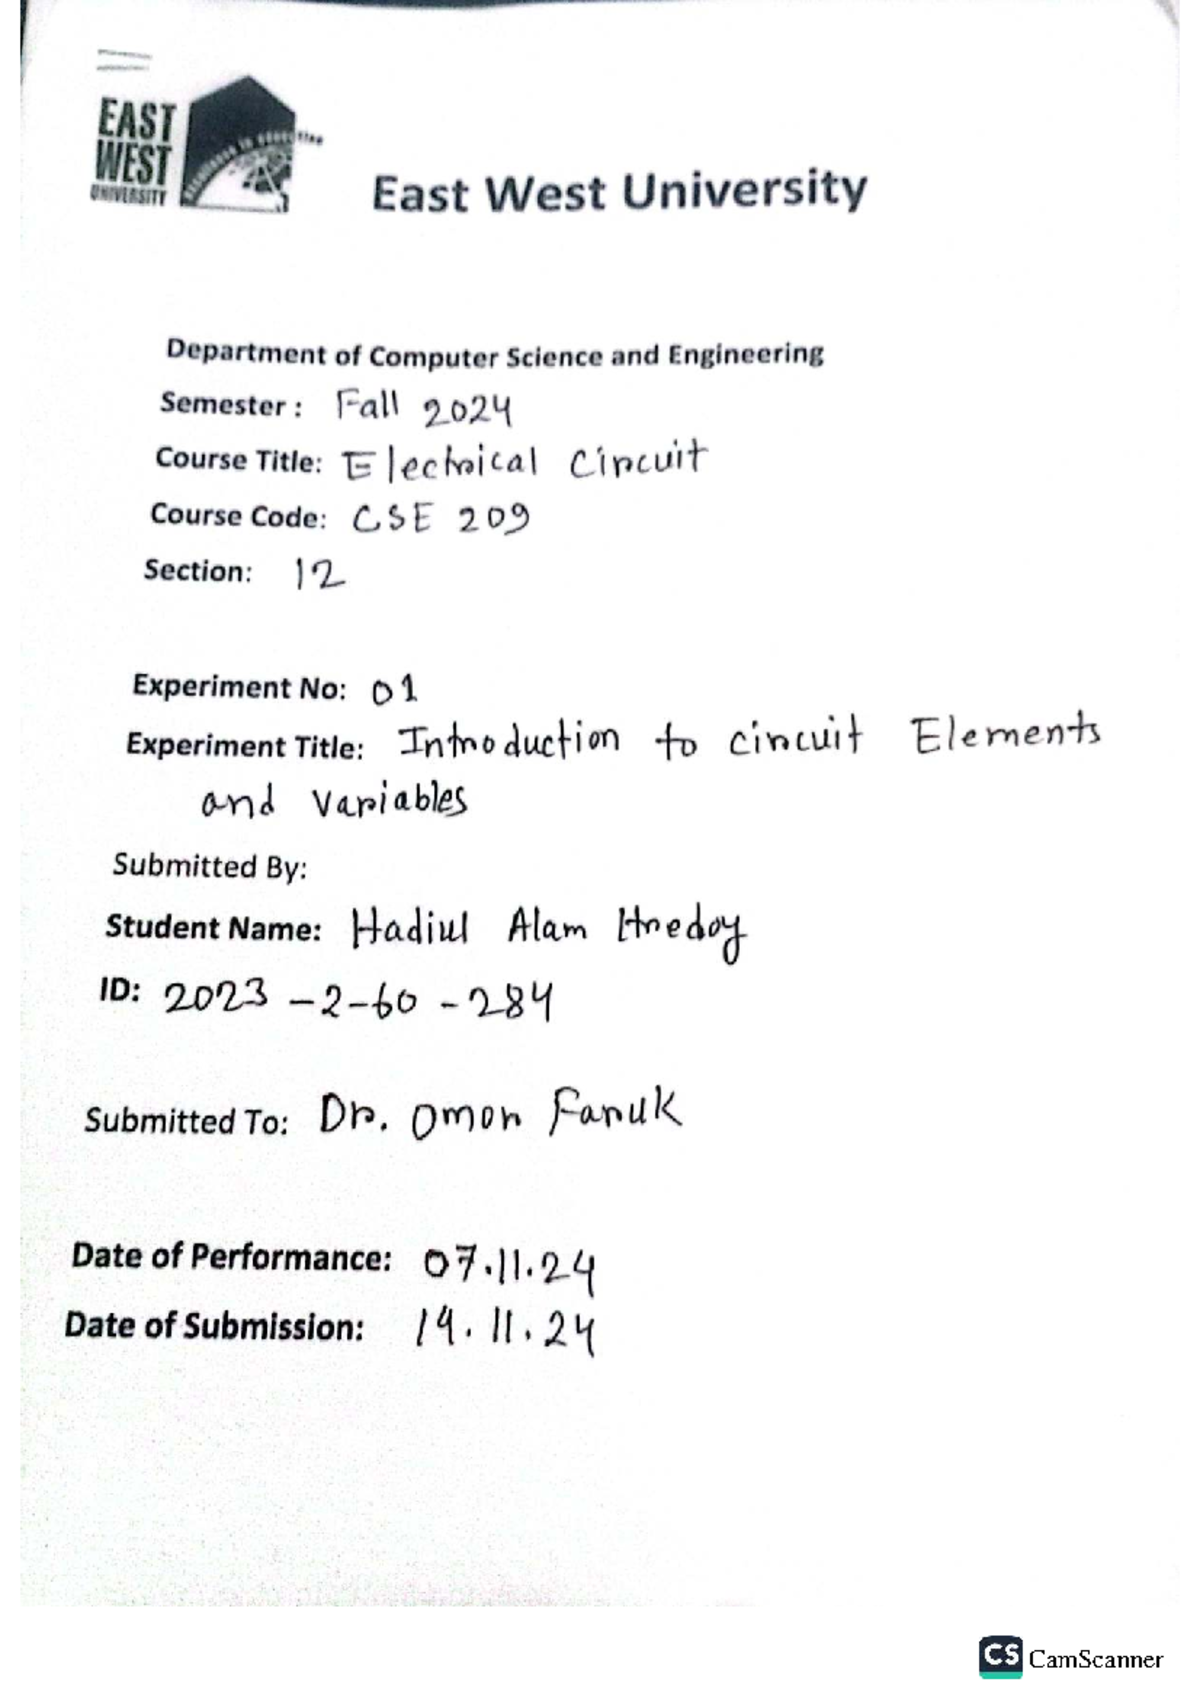 EAST
WEST
UNIVERSITY
East West University
Department of Computer Science and Engineering
Semester : Fall 2024
Course Title: Electrical Circuit
Course Code: CSE 209
Section: 12
Experiment No: 01
Experiment Title: Introduction to circuit Elements
and variables
Submitted By:
Student Name: Hadiul Alam Hredoy
ID: 2023-2-60-284
Submitted To: Dr. Omor Faruk
Date of Performance: 07.11.24
Date of Submission: 14.11.24
CS CamScanner